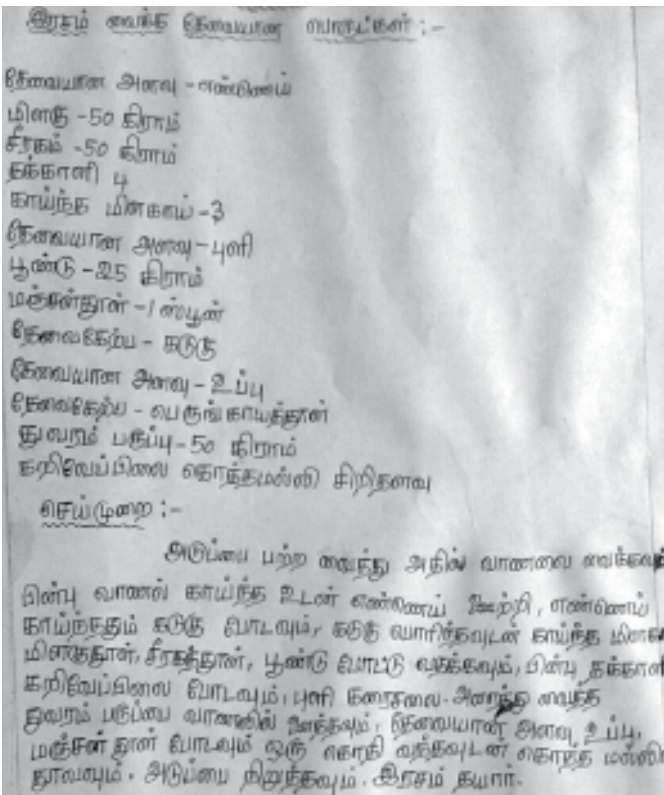 இரசம் வைக்க தேவையான பொருட்கள் :-
தேவையான அளவு - எண்ணெய்
மிளகு - 50 கிராம்
சீரகம் - 50 கிராம்
தக்காளி 4
காய்ந்த மிளகாய் - 3
தேவையான அளவு - புளி
பூண்டு - 25 கிராம்
மஞ்சள்தூள் - 1 ஸ்பூன்
தேவைகேற்ப - கடுகு
தேவையான அளவு - உப்பு
தேவைகேற்ப - பெருங்காயத்தூள்
துவரம் பருப்பு - 50 கிராம்
கறிவேப்பிலை கொத்தமல்லி சிறிதளவு
செய்முறை :-
அடுப்பை பற்ற வைத்து அதில் வாணலை வைக்கவும்
பின்பு வாணல் காய்ந்த உடன் எண்ணெய் ஊற்றி, எண்ணெய்
காய்ந்ததும் கடுகு போடவும், கடுகு காய்ந்த
மிளகுதூள், சீரகத்தூள், பூண்டு போட்டு வதக்கவும், பின்பு
கறிவேப்பிலை போடவும், புளி கரைசலை. அரைத்து வைத்த
துவரம் பருப்பை வாணலில் ஊற்றவும், தேவையான அளவு உப்பு,
மஞ்சள் தூள் போடவும் ஒரு கொதி வந்தவுடன் கொத்த
தூவவும். அடுப்பை நிறுத்தவும். இரசம் தயார்.